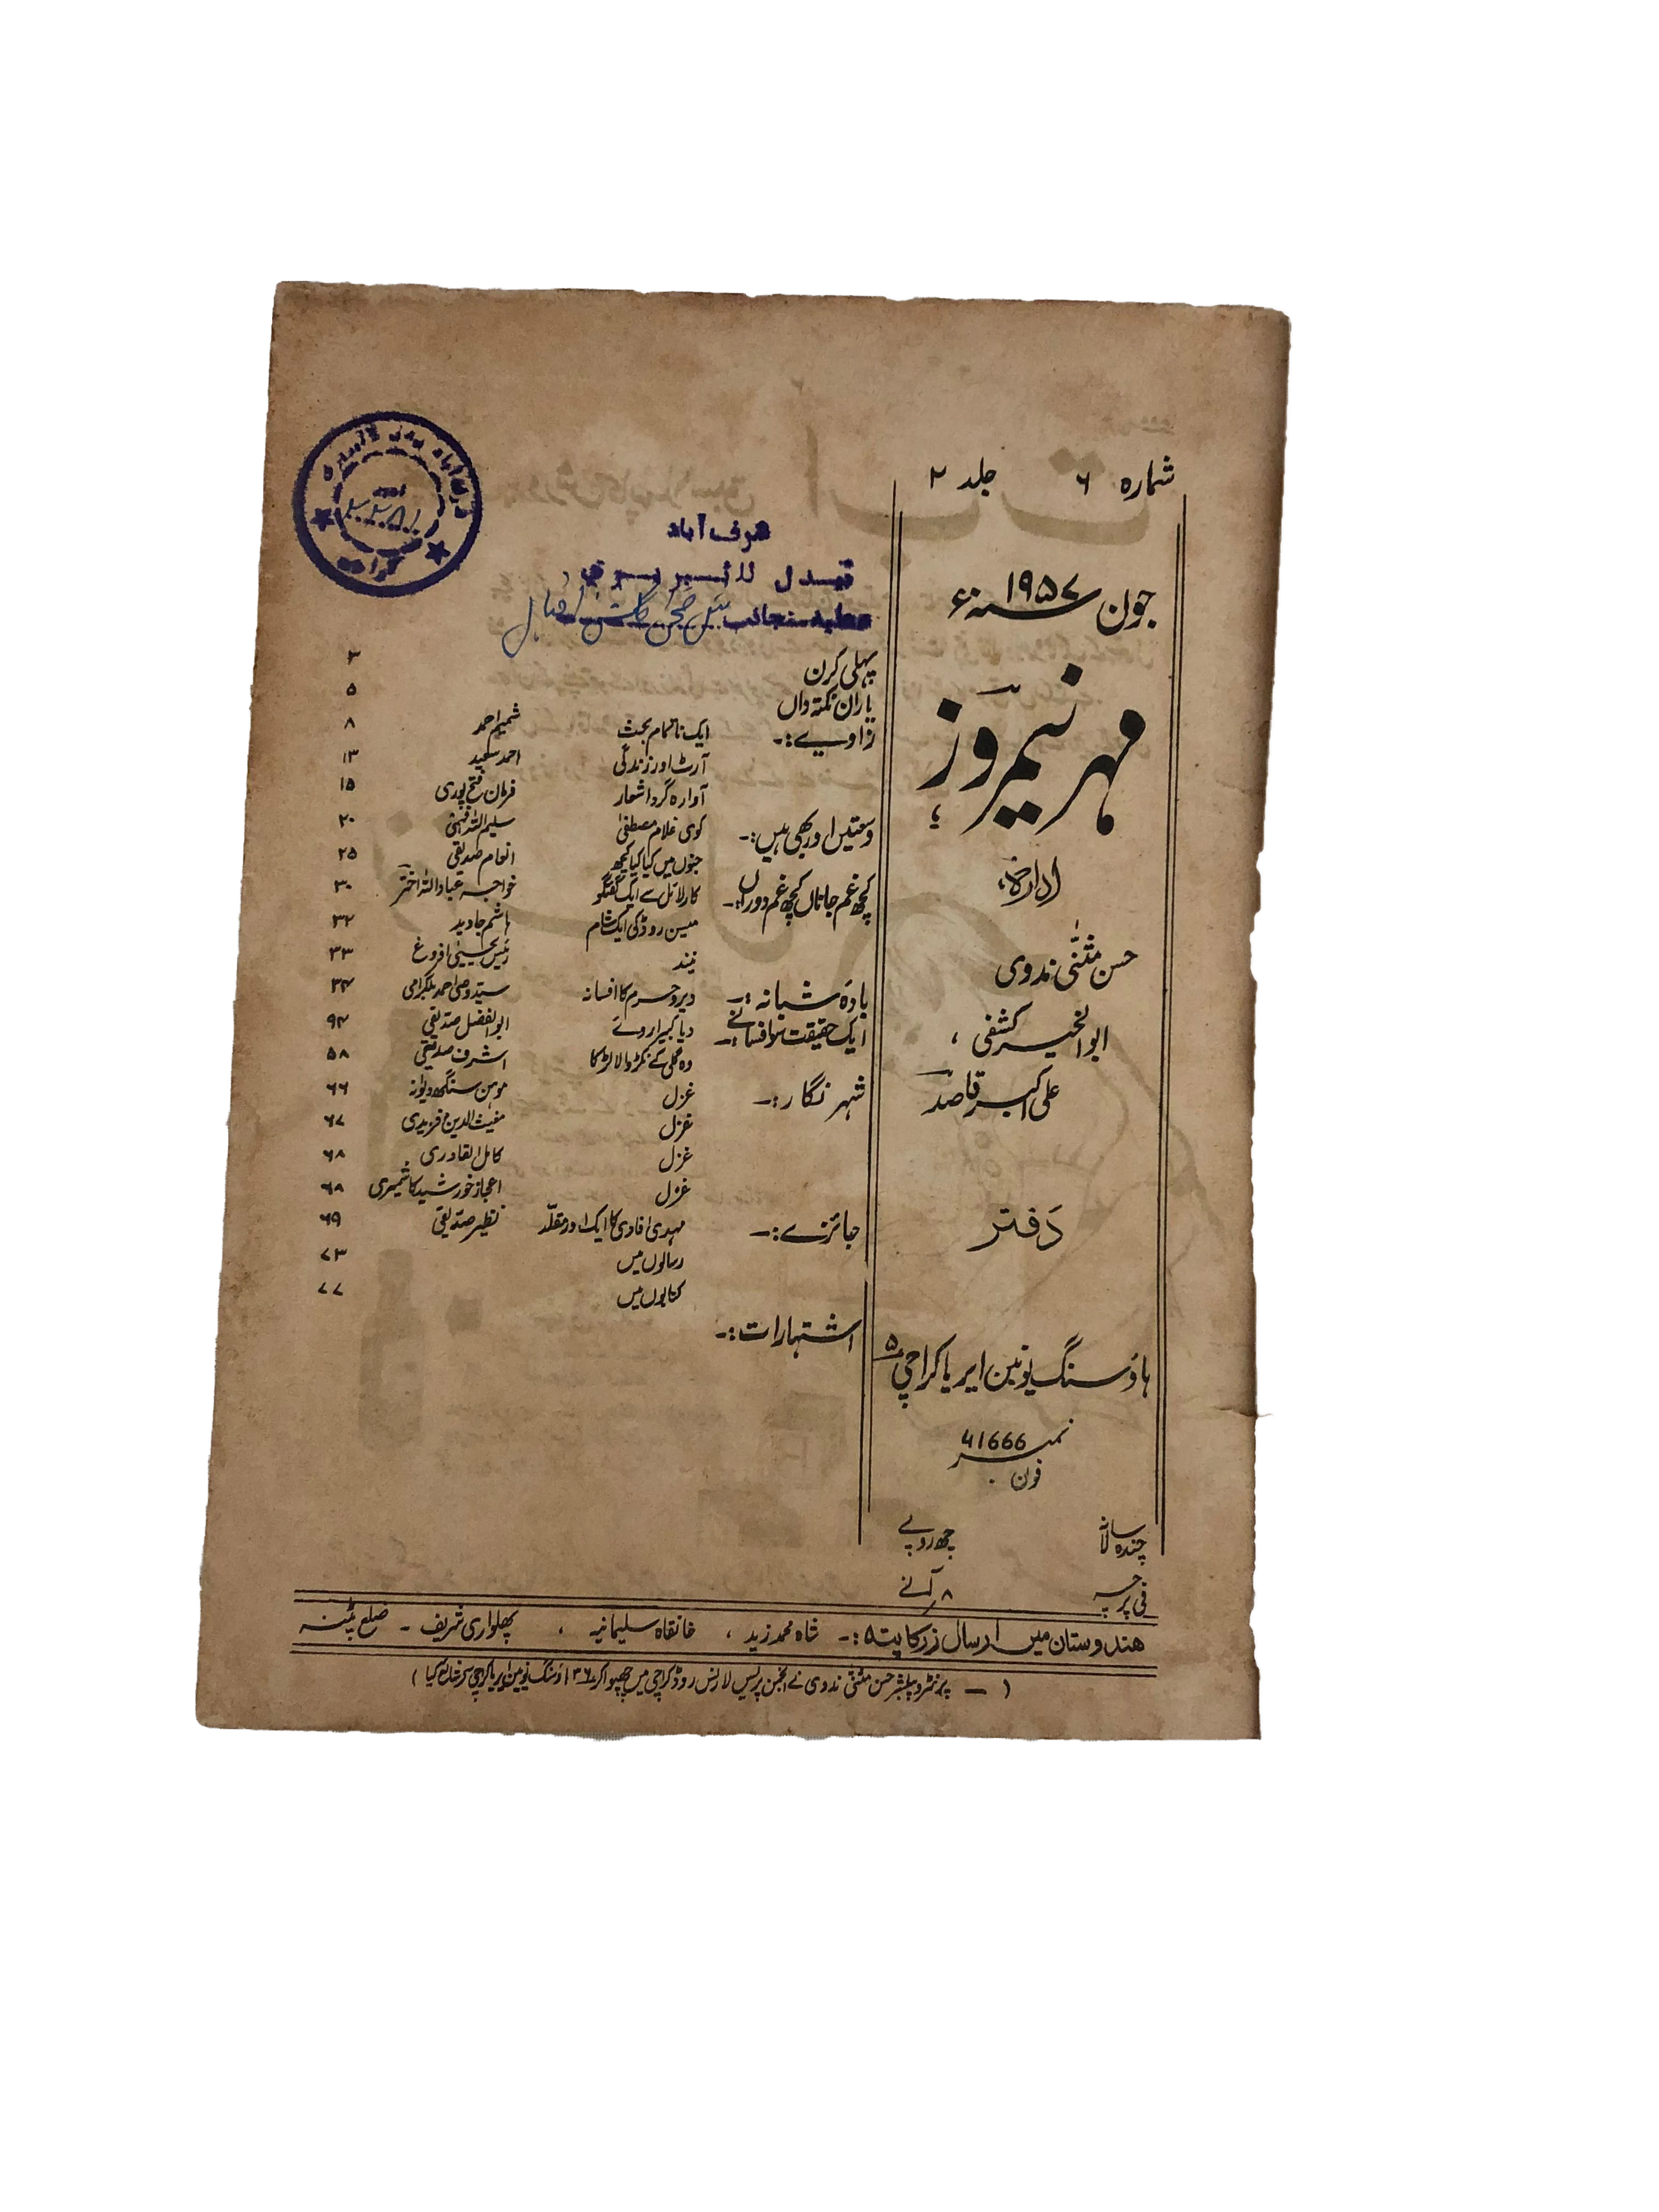 شمارہ ۶ جلد ۲
جون ۱۹۵۷ سنہ ء
مہر نیمروز
ادارہ:
حسن مثنیٰ ندوی
ابوالخیر کشفی ،
علی اکبر قاصد
دفتر
ہاؤسنگ یونین ایریا کراچی ۵
نمبر 41666
فون
چندہ سالانہ چھ روپے
فی پرچہ ۸ر آنے
شرف آباد
عطیہ منجانب
پہلی کرن ۳
یاران نکتہ داں ۵
زاویے:۔ ایک ناتمام بحث شمیم احمد ۸
آرٹ اور زندگی احمد سعید ۱۳
آوارہ گرد اشعار فرمان فتح پوری ۱۵
وسعتیں اور بھی ہیں:۔ کوی غلام مصطفیٰ سلیم اللہ فہمی ۲۰
جنوں میں کیا کیا کچھ انعام صدیقی ۲۵
کچھ غم جاناں کچھ غم دوراں:۔ کارلائل سے ایک گفتگو خواجہ عباداللہ اختر ۳۰
مین روڈ کی ایک شام ہاشم جاوید ۳۲
نیند رئیس یحییٰ افروغ ۳۳
بادۂ شبانہ:۔ دیر و حرم کا افسانہ سید وصی احمد بلگرامی ۳۴
ایک حقیقت سو افسانے:۔ دیا کبیرا روئے ابوالفضل صدیقی ۹۴
وہ گلی کے نکڑ والا لڑکا اشرف صدیقی ۵۸
شہر نگار:۔ غزل موہن سنگھ دیوانہ ۶۶
غزل مغیث الدین فریدی ۶۷
غزل کامل القادری ۶۸
غزل اعجاز خورشید کاشمیری ۶۸
جائزے:۔ مہدی افادی کا ایک اور مقلد نظیر صدیقی ۶۹
رسالوں میں ۷۳
کتابوں میں ۷۷
اشتہارات:۔
ہندوستان میں ارسال زر کا پتہ:۔ شاہ محمد زید ، خانقاہ سلیمانیہ ، پھلواری شریف ۔ ضلع پٹنہ
( — پرنٹر و پبلشر حسن مثنیٰ ندوی نے انجمن پریس لارنس روڈ کراچی میں چھپوا کر ۳۶ ہاؤسنگ یونین ایریا کراچی سے شائع کیا )